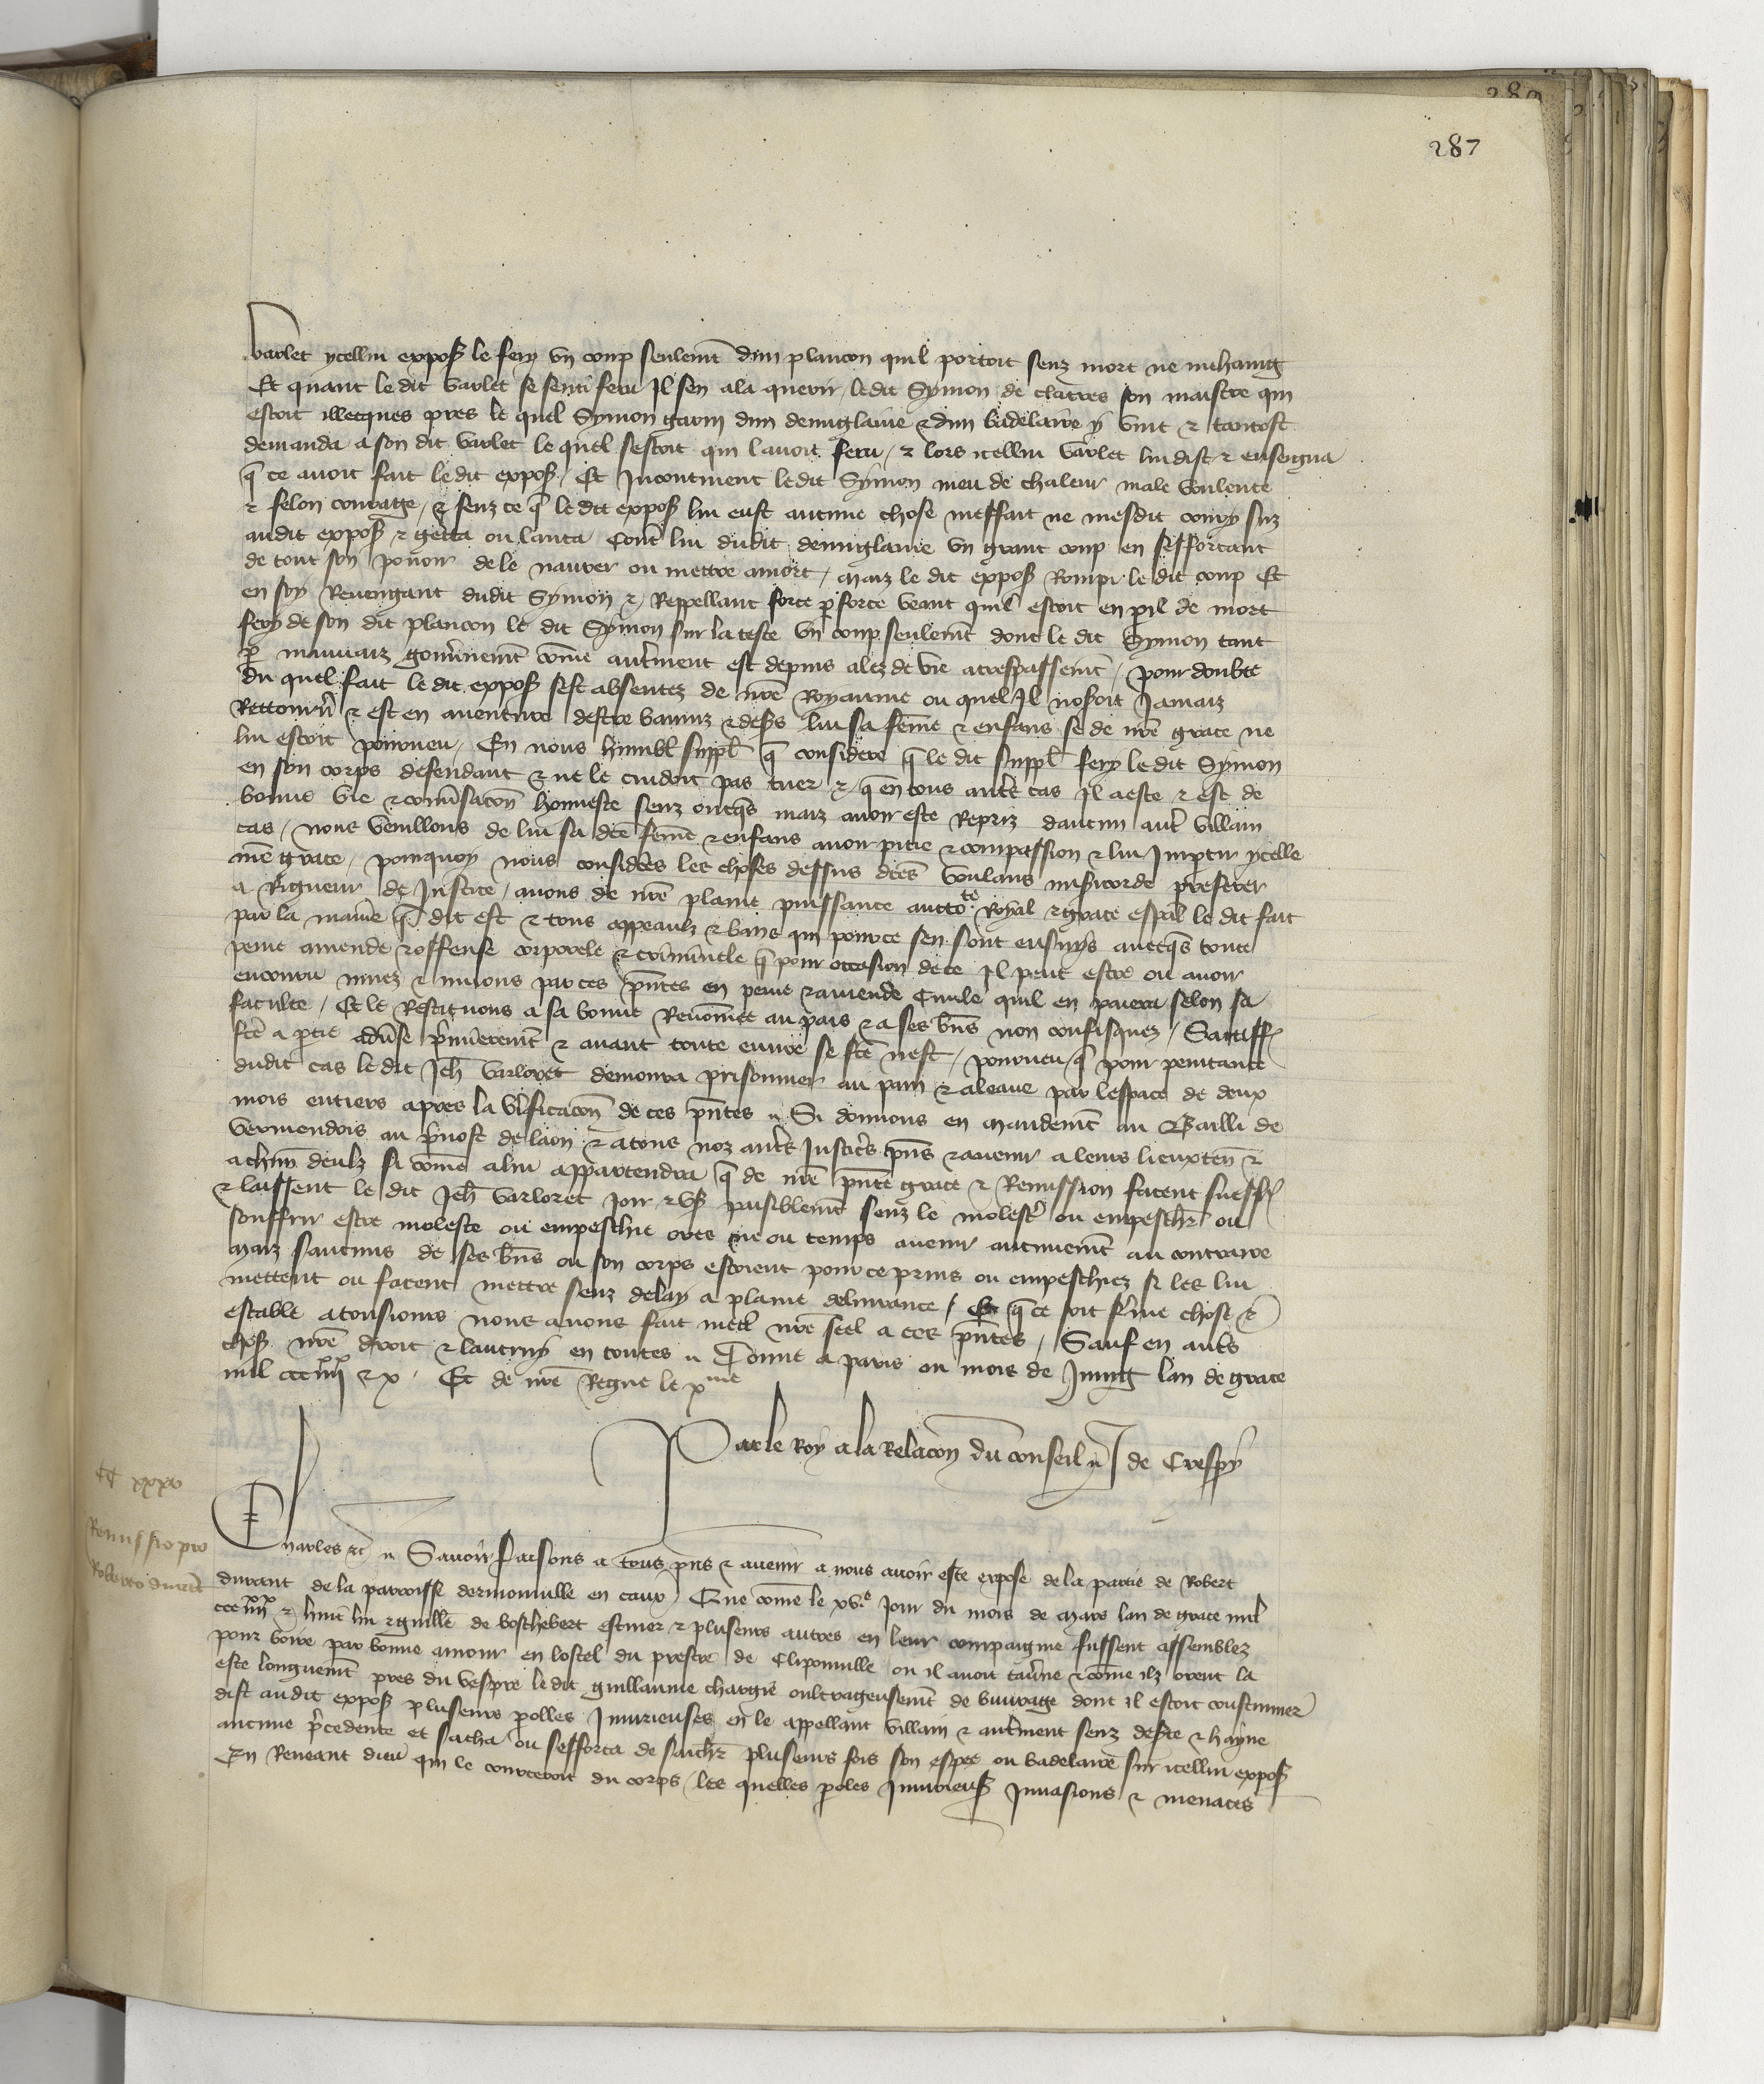 287
varlet ycellui exposs̃ le fery vn coup seulemt̃ dun plancon quil portoit senz mort ne mehaing
Et quant le dit varlet se senti feru Il sen ala querir ledit Symon de clacres son maistre qui
estoit illecques pres le quel Symon garni dun demiglaiue & dun badelaire y vint & tantost
demanda a son dit varlet le quel sestoit qui lauoit feru / & lors icellui varlet lui dist & enseigna
q̃ ce auoit fait le dit exposs̃ / Et Incontinent ledit Symon meu de chaleur male voulente
& felon courage / & senz ce q̃ le dit exposs̃ lui eust aucune chose meffait ne mesdit couru suz
audit exposs̃ & getta ou lanca contr̃ lui dudit demiglaiue vn grant coup en sefforcant
de tout son pouoir de le naurer ou mettre amort / maiz le dit exposs̃ Rompi le dit coup Et
en soy Reuengant dudit Symon & Reppellant force p̃ force veant quil estoit en p̃il de mort
fery de son dit plancon le dit Symon sur la teste vn coup seulemt̃ dont le dit Symon tant
p̃ mauuaiz gouũnemt̃ cõme autr̃ment est depuis alez de vie a trespassemt̃ / pour doubte
du quel fait le dit exposs̃ sest absentez de nr̃e Royaume ou quel Il noseroit Jamaiz
Rettourñ & est en auenture destre banniz & des̃s lui sa fẽme & enfans se de nr̃e grace ne
lui estoit pourueu / En nous humbl̃ suppl̃ q̃ considere q̃ le dit suppl̃ fery le dit Symon
en son corps defendant & ne le cuidoit pas tuer & q̃ en tous autr̃s cas Il a este & est de
bonne vie & conũsacõn honneste senz oncq̃s maiz auoir este Repriz daucun autr̃ villain
cas / nous veuillons de lui sa dcẽ fẽme & enfans auoir pitie & compassion & lui Imp̃tir ycelle
nr̃e grace / pourquoy nous considerãs les choses dessus dcẽs voulans mis̃icorde preferer
a Rigueur de Justice / auons de nr̃e plaine puissance auctote Royal & grace esp̃al le dit fait
par la manie͂ q̃ dit est & tous appeaulx & bans qui pour ce sen sont ensuys auecq̃s toute
peine amende & offense corporele & crĩminele q̃ pour occasion de ce Il peut estre ou auoir
encouru muez & muons par ces pñtes en peine & amende Ciuile quil en paiera selon sa
faculte / Et le Restituons a sa bonne Renõmee au pais & a ses bñs non confisquez / Satisff̃
fcẽ a p̃tie aduũse p̃mierement & auant toute euure se fcẽ nest / pourueu q̃ pour penitance
dudit cas le dit Jeh̃ varloret demorra prisonnier au pain & a leaue par lespace de deux
mois entiers apres la ṽificacõn de ces pñtes // Si donnons en mandemt̃ au Bailli de
vermendois au p̃uost de laon & a tous noz autr̃s Justicrẽs pñs & auenir a leurs lieuxteñ &
a chũn deulz si cõme a lui appartendra q̃ de nr̃e pñte grace & Remission facent sueffr̃
& laissent le dit Jeh̃ varloret Joir & vs̃ paisiblemt̃ senz le molestr̃ ou empeschr̃ ou
souffrir estre moleste ou empeschie ores ne ou temps auenir aucunemt̃ au contraire
Maiz saucuns de ses bñs ou son corps estoient pour ce prins ou empeschiez si les lui
mettent ou facent mettre senz delay a plaine deliurance / Et q̃ ce soit fr̃me chose &
estable a tousiours nous auons fait mettr̃ nr̃e seel a ces pñtes / Sauf en autr̃s
choses nr̃e droit & lautruy en toutes // Donne a paris ou mois de Juing lan de grace
mil ccc iiiixx & x / Et de nr̃e Regne le xme
Par le Roy a la Relacõn du conseil // J de Crespy
CC xxxv
Remissio pro
Roberto durant
Charles &c̃ // Sauoir faisons a tous pñs & auenir a nous auoir este expose de la partie de Robert
durant de la parroisse dermonuille en caux Que cõme le xve Jour du mois de Mars lan de grace mil
ccc iiiixx & huit lui & guillẽ de boschebert escuier & plusieurs autres en leur compaignie fussent assemblez
pour boire par bonne amour en lostel du prestre de Cliponuille ou il auoit tauũne & cõme ilz orent la
este longuemt̃ pres du vespre le dit guillaume chargie oultrageusemt̃ de buurage dont il estoit coustumier
dist audit exposs̃ plusieurs p̃olles Iniurieuses en le appellant villain & autr̃ment senz des̃te & hayne
aucune p̃cedente et sacha ou sefforca de sachr̃ plusieurs fois son espee ou badelaire sur icellui exposs̃
En Reneant dieu qui le courceroit du corps / les quelles p̃oles Iniurieus̃s Inuasions & menaces